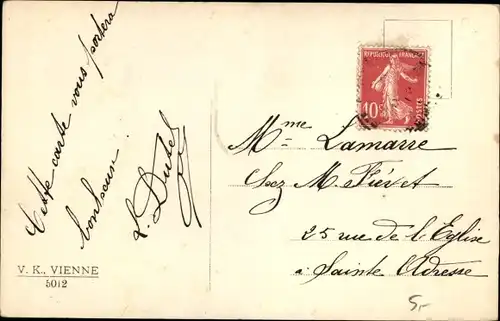 Cette carte vous portera
bonheur.
L. Dutel
V. K., VIENNE
5012
REPUBLIQUE FRANÇAISE
10c
POSTES
Mme Lamarre
Chez M. Fiévet
25 rue de l'Eglise
à Sainte Adresse
5,-